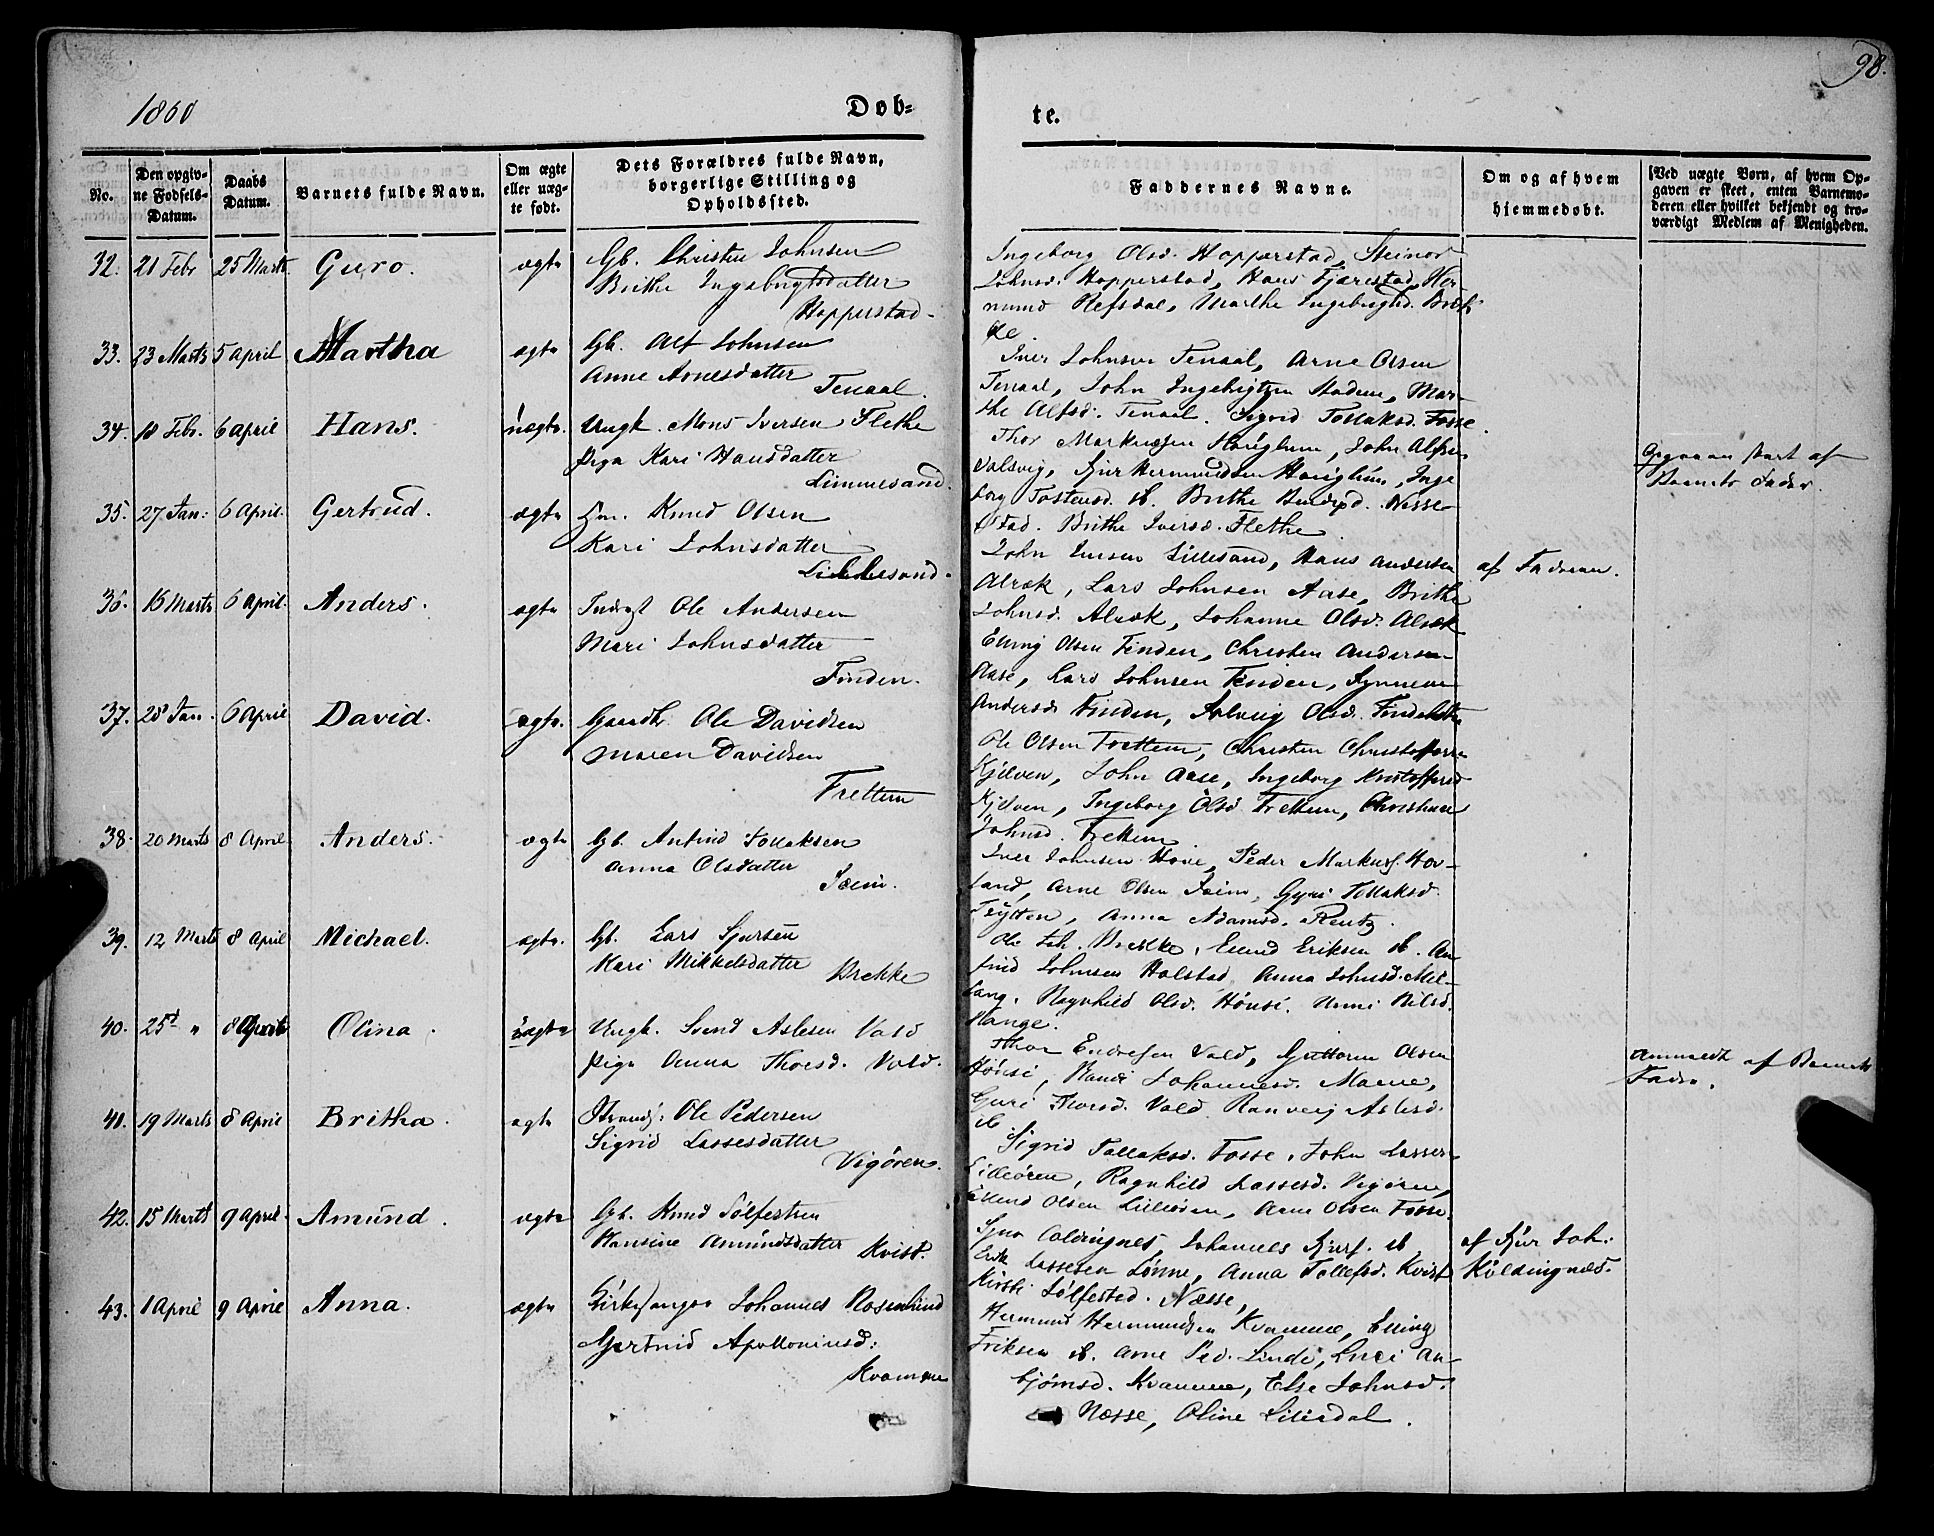 98.
1860
Døb-
te.
No.
Den opgiv-
ne Fødsels-
Datum.
Daabs
Datum.
Barnets fulde Navn.
Om ægte
eller uæg-
te født.
Dets Forældres fulde Navn,
borgerlige Stilling og
Opholdssted.
Faddernes Navne.
Om og af hvem
hjemmedøbt.
[Ved uægte Børn, af hvem Op-
gaven er skeet, enten Barnemo-
deren eller hvilket bekjendt og tro-
værdigt Medlem af Menigheden.
32. 21 Febr 25 Marts Guro. ægte Gb. Christen Johnsen
Brithe Ingebrigtsdatter
Hopperstad.
Ingeborg Olsd. Hopperstad, Steinar
Johnsd. Hopperstad, Hans Fjærestad, Her-
mund Refsdal, Marthe Ingebrigtsd. Brek-
ke
33. 23 Marts 5 April Martha ægte Gb. Alf Johnsen
Anne Arnesdatter
Tenaal.
Iver Johnsen Tenaal, Arne Olsen
Tenaal, John Ingebrigtsen Stadem, Mar-
the Alfsd. Tenaal. Sigrid Tollaksd. Fosse.
34. 18 Febr. 6 April Hans. uægte. Ungk. Mons Iversen Flethe
Pige Kari Hansdatter
Limmesand.
Thor Markusen Hauglum, John Alfsen
Valsvig, Sjur Hermundsen Hauglum, Inge
borg Tostensd. ib. Brithe Nesse-
stad. Brithe Iversd. Flethe
Opgaven skeet af
Barnets Fader.
35. 27 Jan: 6 April. Gertrud. ægte Hm. Knud Olsen
Kari Johnsdatter
Lillesand.
John Lillesand, Hans Andersen
Alræk, Lars Johnsen Aase, Brithe
Johnsd. Alræk, Johanne Olsd. Alræk
af Faderen.
36. 15 Marts 6 April. Anders. ægte Inderst Ole Andersen
Mari Johnsdatter
Finden.
Elling Olsen Finden, Christen Andersen
Aase, Lars Johnsen Finden, Synneve
Andersd. Finden, Solveig Olsd.
37. 28 Jan. 6 April David. ægte. Gaardb. Ole Davidsen
Maren Davidsen
Frettem
Ole Olsen Frettem, Christen
Kjelven, John Aase, Ingeborg
Kjelven, Ingeborg Olsd Frettem, Christiane
Johnsd. Frettem
38. 20 Marts 8 April. Anders. ægte Gb. Anfind Tollaksen
Anna Olsdatter
Sæim.
Iver Johnsen Hove, Peder Markusf. Hov-
land, Arne Olsen Sæim, Gyri Tollaksd.
Trytten, Anna Adamsd.
39. 12 Marts 8 April Michael. ægte. Gb. Lars Sjursen
Kari Mikkelsdatter Brekke
Ole Joh. Brekke, Erik Eriksen ib. An-
find Johnsen Halstad, Anna Johnsd. Mel-
lang. Ragnhild Olsd. Hønsi. Anni Nilsd.
Hange.
40. 25d " 8 April Olina. uægte Ungk. Svend Aslesen Vold
Pige Anna Thorsd. Vold.
Thor Endresen Vold, Guttorm Olsen
Hønsi, Randi Johannesd. Maene,
Guri Thorsd. Vold. Ranveig Aslesd.
ib.
Anmeldt af Barnets
Fader.
41. 19 Marts 8 April Britha. ægte Strands. Ole Pedersen
Sigrid Lassesdatter
Vigøren.
Sigrid Tollaksd. Fosse, John Lassesen
Lilleøren, Ragnhild Lassesd. Vigøren,
Erlend Olsen Lilleøren, Arne Olsen Fosse.
42. 15 Marts 9 April. Amund. ægte Gb. Knud Sølfestsen
Hansine Amundsdatter Kvist.
Sjur Coldingnes, Johannes Sjurs. ib.
Erik Lassesen Lønne, Anna Tollefsd. Kvist
Kirsti Sølfestsd. Næsse,
af Sjur Joh.
Koldingnæs.
43. 1 April 9 April Anna. ægte Kirkesanger Johannes Rosenlund
Gjertrud Apolloniusd:
Kvamme
Hermund Hermundsen Kvamme, Elling
Eriksen ib. Arne Ped. Linde, Lusi An-
bjørnsd. Kvamme, Else Johnsd.
Næsse, Oline Lilledal.